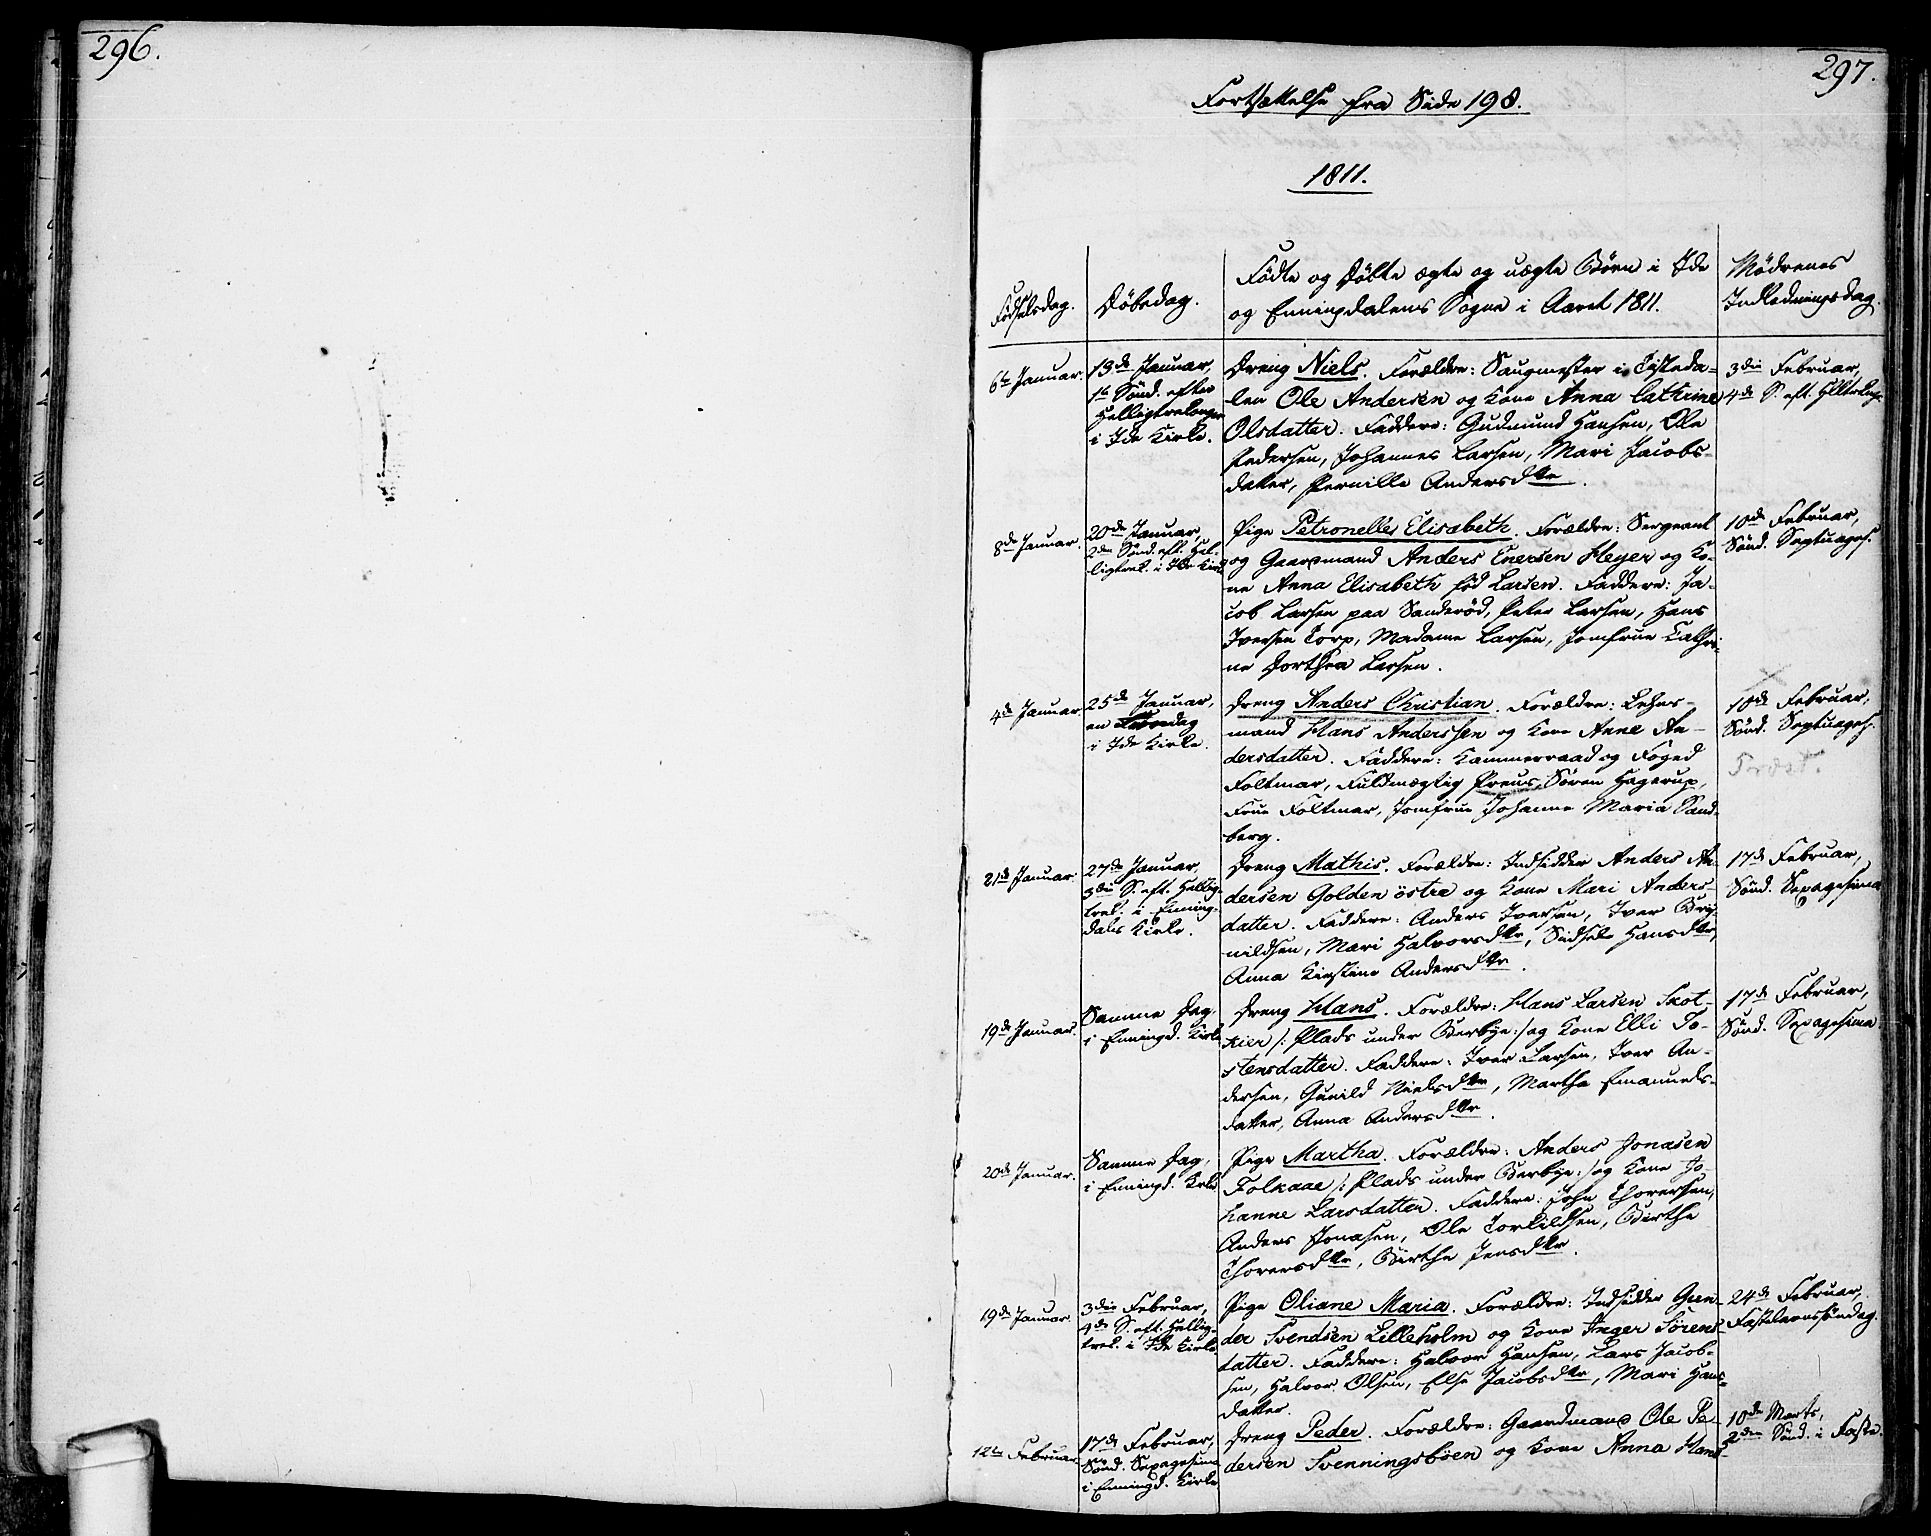 296.
297.
Fortsættelse fra Side 198.
1811.
Fødselsdag.
Døbedag.
Fødte og Døbte ægte og uægte Børn i Ide
og Enningdalens Sogne i Aaret 1811.
Mødrenes
Indledningsdag.
6te Januar.
13de Januar,
1te Sønd. efter
Helligtrekonger
i Ide Kirke.
Dreng Niels. Forældre: Saugmester i Tisteda-
len Ole Andersen og Kone Anna Cathrine
Olsdatter. Faddere: Gudmund Hansen, Ole
Pedersen, Johannes Larsen, Mari Jacobs-
datter, Pernille Andersdttr.
3die Februar,
4de S. eft. H
8de Januar.
20de Januar,
2den Sønd. eft. Hel-
ligtrek. i Ide Kirke
Pige Petronelle Elisabeth. Forældre: Sergeant
og Gaardmand Anders Enersen Heyer og Ko-
ne Anna Elisabeth fød Larsen. Faddere: Ja-
cob Larsen paa Sanderød, Peter Larsen, Hans
Iversen Torp, Madame Larsen, Jomfrue Cathri-
ne Dorthea Larsen.
10de Februar,
Sønd. Septuages.
4de Januar.
25de Januar,
en dag
i Ide Kirke.
Dreng Anders Christian. Forældre: Lehns-
mand Hans Anderssen og Kone Anne An-
dersdatter. Faddere: Kammerraad og Foged
Foltmar, Fuldmægtig Preus, Søren Hagerup,
Frue Foltmar, Jomfrue Johanne Maria Sand-
berg.
10de Februar,
Sønd. Septuages.
21de Januar.
27de Januar,
3die S. eft. Hellig-
trek. i Enning-
dals Kirke.
Dreng Mathis. Forældre: Indsidder Anders An-
dersen Golden østre og Kone Mari Anders-
datter. Faddere: Anders Iversen, Iver Bry-
nildsen, Mari Halvorsdttr, Sidsel Hansdttr,
Anna Kirstine Andersdttr.
17de Februar,
Sønd. Sexagesima
19de Januar.
Samme Dag,
i Enningd. Kirke
Dreng Hans. Forældre: Hans Larsen Skot-
kier /: Plads under Berbye :/ og Kone Elli To-
stensdatter. Faddere: Iver Larsen, Iver An-
dersen, Gunild Nielsdttr, Martha Emanuels-
datter, Anna Andersdttr.
17de Februar,
Sønd. Sexagesima
20de Januar.
Samme Dag,
i Enningd. Kirke
Pige Martha. Forældre: Anders Jonasen
Folkaae /: Plads under Berbye :/ og Kone Jo-
hanne Larsdatter. Faddere: John Thoresen,
Anders Jonasen, Ole Torkildsen, Birthe
Thoresdttr, Birthe Jensdttr.
19de Januar.
3die Februar,
4de S. eft. Hellig-
trek. i Ide Kirke
Pige Oliane Maria. Forældre: Indsidder Gun-
der Svendsen Lilleholm og Kone Inger Sørens-
datter. Faddere: Halvor Hansen, Lars Jacob-
sen, Halvor Olsen, Else Jacobsdttr, Mari Hans-
datter.
24de Februar,
Fastelavnssøndag.
12te Februar.
17de Februar,
Sønd. Sexagesima
i Enningd. Kirke
Dreng Peder. Forældre: Gaardmand Ole Pe-
dersen Svenningsbøen og Kone Anna Hans-
10de Marts,
2den Sønd. i Faste.